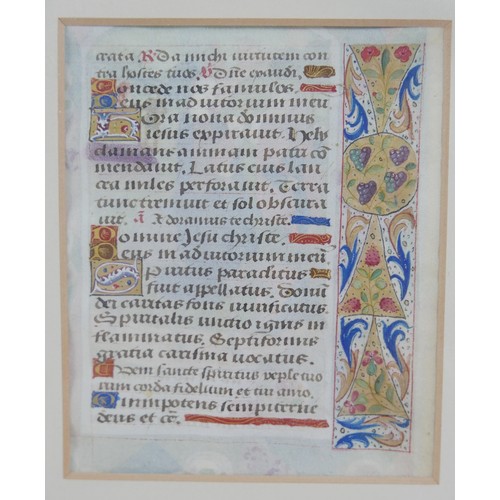 crata. R Da michi virtutem con
tra hostes tuos. V Dñe exaudi.
Concede nos famulos.
Deus in adiutorium meū
Hora nona dominus
iesus expiravit. Hely
clamans animam patri com
mendavit. Latus eius lan
cea miles perforavit. Terra
tunc tremuit et sol obscura
vit. Adoramus te christe.
Domine Jesu christe.
Deus in adiutorium meū
Spiritus paraclitus
fuit appellatus. Donū
dei caritas fons vivificatus.
Spiritalis unctio ignis in
flammatus. Septiformis
gratia carisma vocatus.
Veni sancte spiritus reple tuo
rum corda fidelium et tui amo.
Omnipotens sempiterne
deus et cē.